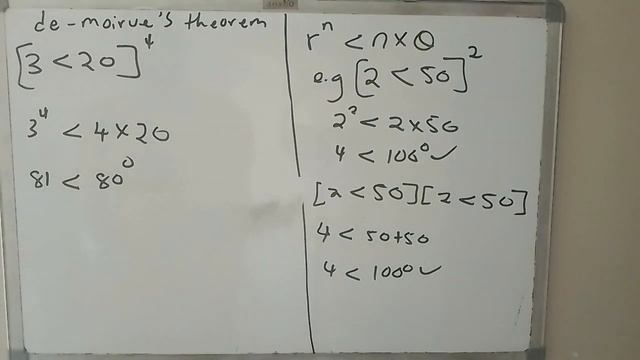 de-moirve's theorem
[3 < 20]⁴
3⁴ < 4 × 20
81 < 80⁰
rⁿ < n × θ
e.g [2 < 50]²
2² < 2 × 50
4 < 100⁰ ✓
[2 < 50][2 < 50]
4 < 50+50
4 < 100⁰ ✓